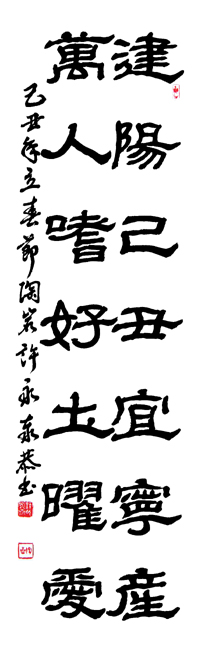 建陽己丑宜寧産
萬人嗜好土曜愛
己丑年立春節陶許永泰恭书